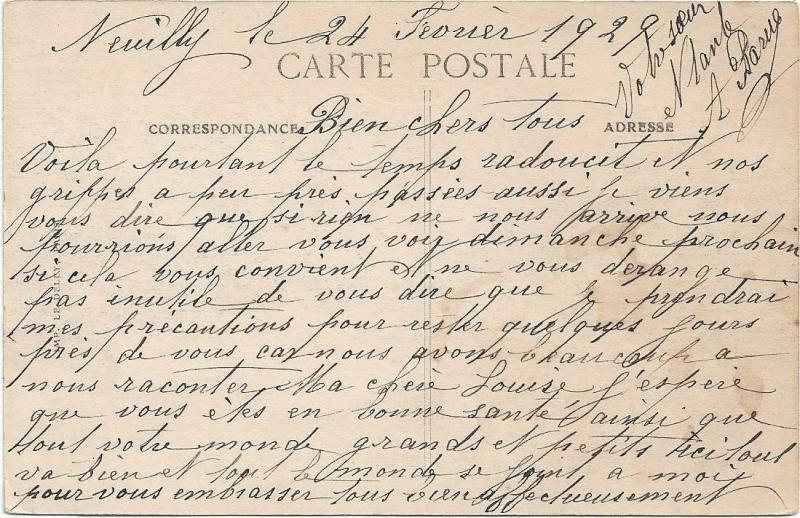 Neuilly le 24 Fevrièr 1929
CARTE POSTALE
CORRESPONDANCE
ADRESSE
Bien chers tous
Voila pourtant le temps radoucit et nos
grippes a peu près passées aussi je viens
vous dire que si rien ne nous arrive nous
pourrions aller vous voir dimanche prochain
si cela vous convient et ne vous derange
pas inutile de vous dire que je prendrai
mes précautions pour rester quelques jours
près de vous car nous avons beaucoup a
nous raconter Ma chère Louise j'espère
que vous êtes en bonne santé ainsi que
tout votre monde grands et petits ici tout
va bien et tout le monde se joint a moi
pour vous embrasser tous bien affectueusement
Votre sœur
et tante
A